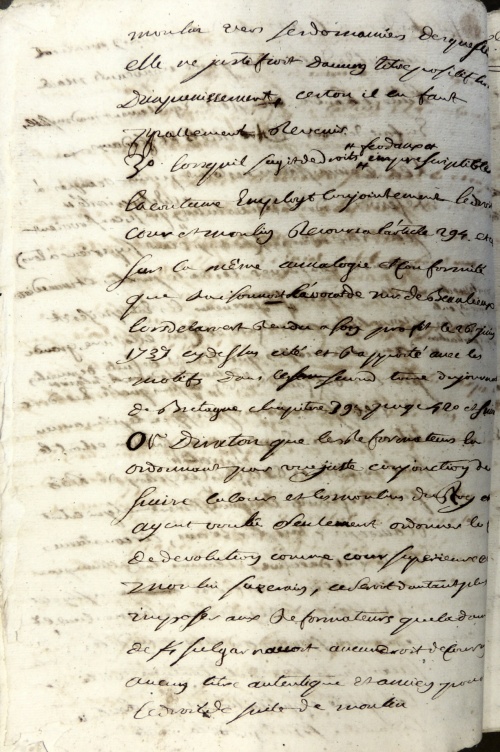 moulin vers ses domaniers desquels
elle ne justifioit d'aucun titre positif
D'inquenissement, et on il en faut
Egallement Revenir
3o. lorsqu'il s'agit de Droits feodaux et imprescriptible
la coutume Employe conjointement le
Cour et moulin Recours a l'article 294.
Sur la même analogie et conformité
que raisonnoit l'avocat de Mr de Beaulieux
lors de l'arrest Rendu a son profit le 26 juin
1737 cy dessus cité et Rapporté avec les
motifs dans le second tome du journal
de Bretagne chapitre 79. page 420 et
Or Diraton que les Reformateurs
ordonnant par une juste conjonction de
suivre la Cour et les moulins du Roy
ayent voulu seulement ordonner
de devolution comme cour superieure
moulin suzerain, ce seroit d'autant plus
imposer aux Reformateurs que
de n'avoit aucun droit de Cour
aucun titre autentique et ancien pour
le droit de suite de moulin